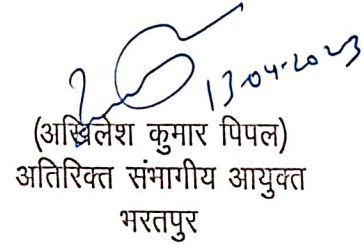 13-04-2023
(अखिलेश कुमार पिपल)
अतिरिक्त संभागीय आयुक्त
भरतपुर